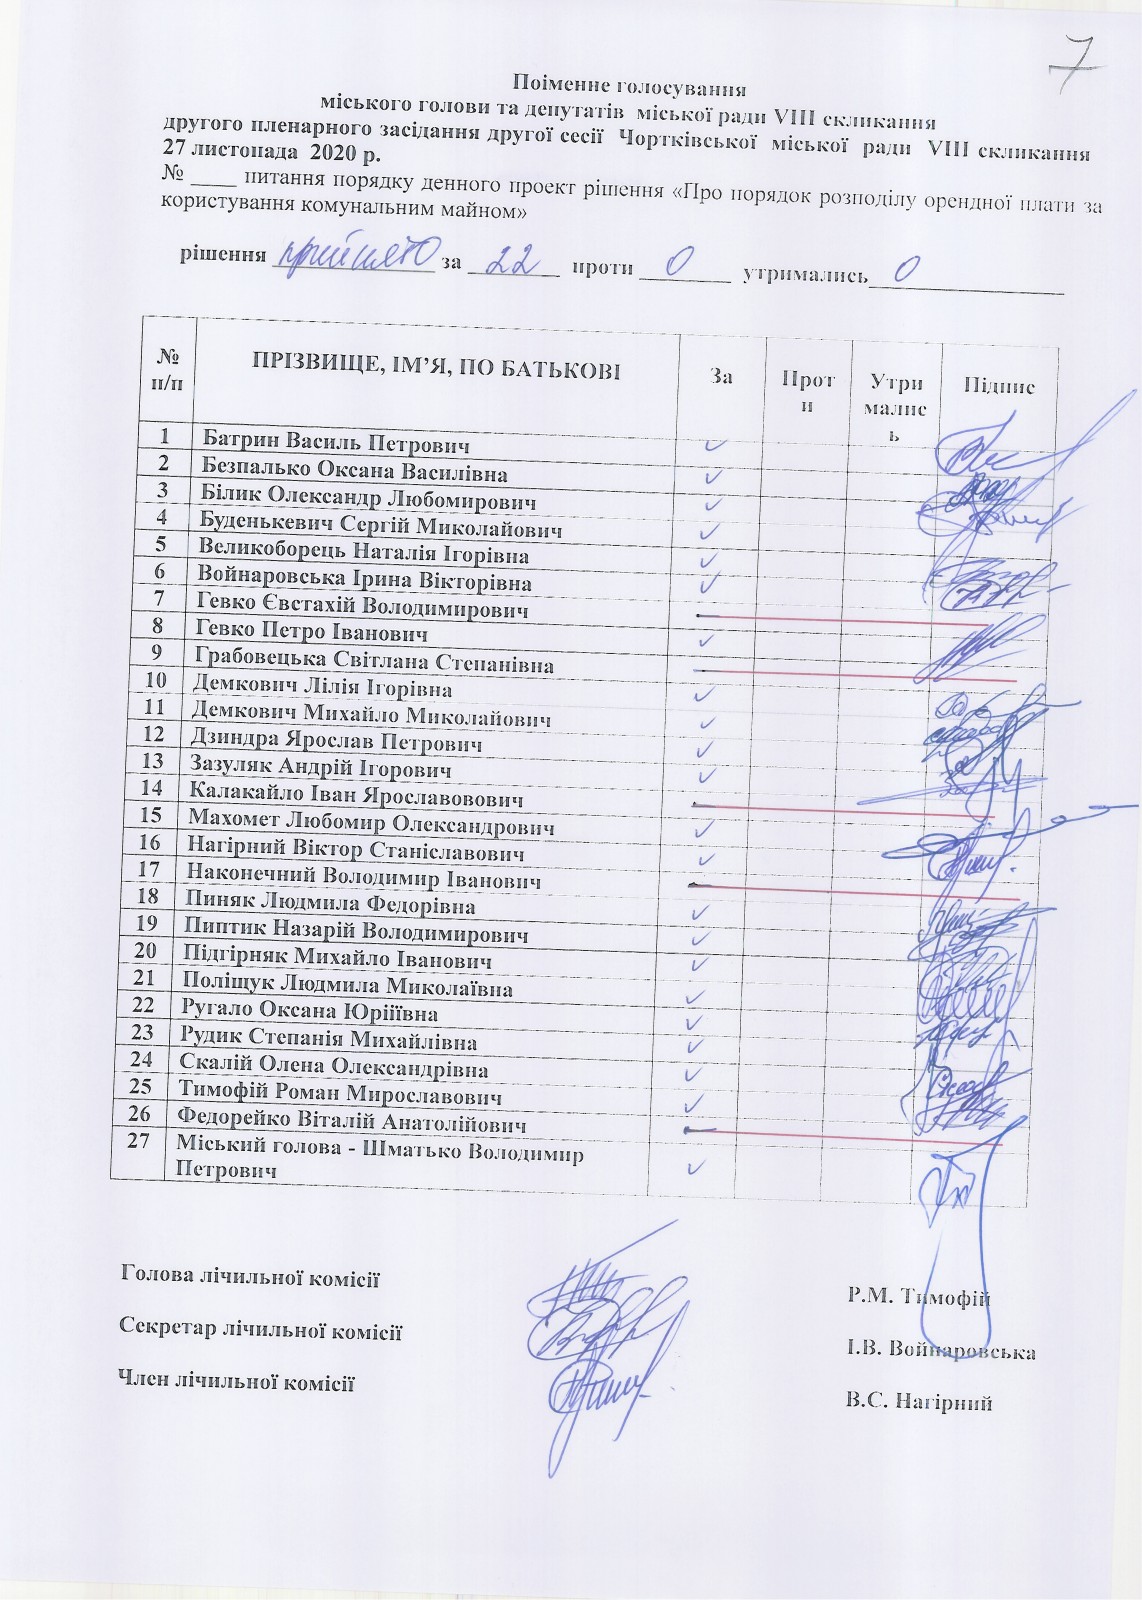 7
Поіменне голосування
міського голови та депутатів міської ради VIII скликання
другого пленарного засідання другої сесії Чортківської міської ради VIII скликання
27 листопада 2020 р.
№ ____ питання порядку денного проект рішення «Про порядок розподілу орендної плати за
користування комунальним майном»
рішення прийнято за 22 проти 0 утримались 0
№ п/п ПРІЗВИЩЕ, ІМ’Я, ПО БАТЬКОВІ За Проти Утрималис ь Підпис
1 Батрин Василь Петрович ✓
2 Безпалько Оксана Василівна ✓
3 Білик Олександр Любомирович ✓
4 Буденькевич Сергій Миколайович ✓
5 Великоборець Наталія Ігорівна ✓
6 Войнаровська Ірина Вікторівна ✓
7 Гевко Євстахій Володимирович
8 Гевко Петро Іванович ✓
9 Грабовецька Світлана Степанівна
10 Демкович Лілія Ігорівна ✓
11 Демкович Михайло Миколайович ✓
12 Дзиндра Ярослав Петрович ✓
13 Зазуляк Андрій Ігорович ✓
14 Калакайло Іван Ярославовович
15 Махомет Любомир Олександрович ✓
16 Нагірний Віктор Станіславович ✓
17 Наконечний Володимир Іванович
18 Пиняк Людмила Федорівна ✓
19 Пиптик Назарій Володимирович ✓
20 Підгірняк Михайло Іванович ✓
21 Поліщук Людмила Миколаївна ✓
22 Ругало Оксана Юріїївна ✓
23 Рудик Степанія Михайлівна ✓
24 Скалій Олена Олександрівна ✓
25 Тимофій Роман Мирославович ✓
26 Федорейко Віталій Анатолійович
27 Міський голова - Шматько Володимир
Петрович ✓
Голова лічильної комісії Р.М. Тимофій
Секретар лічильної комісії І.В. Войнаровська
Член лічильної комісії В.С. Нагірний